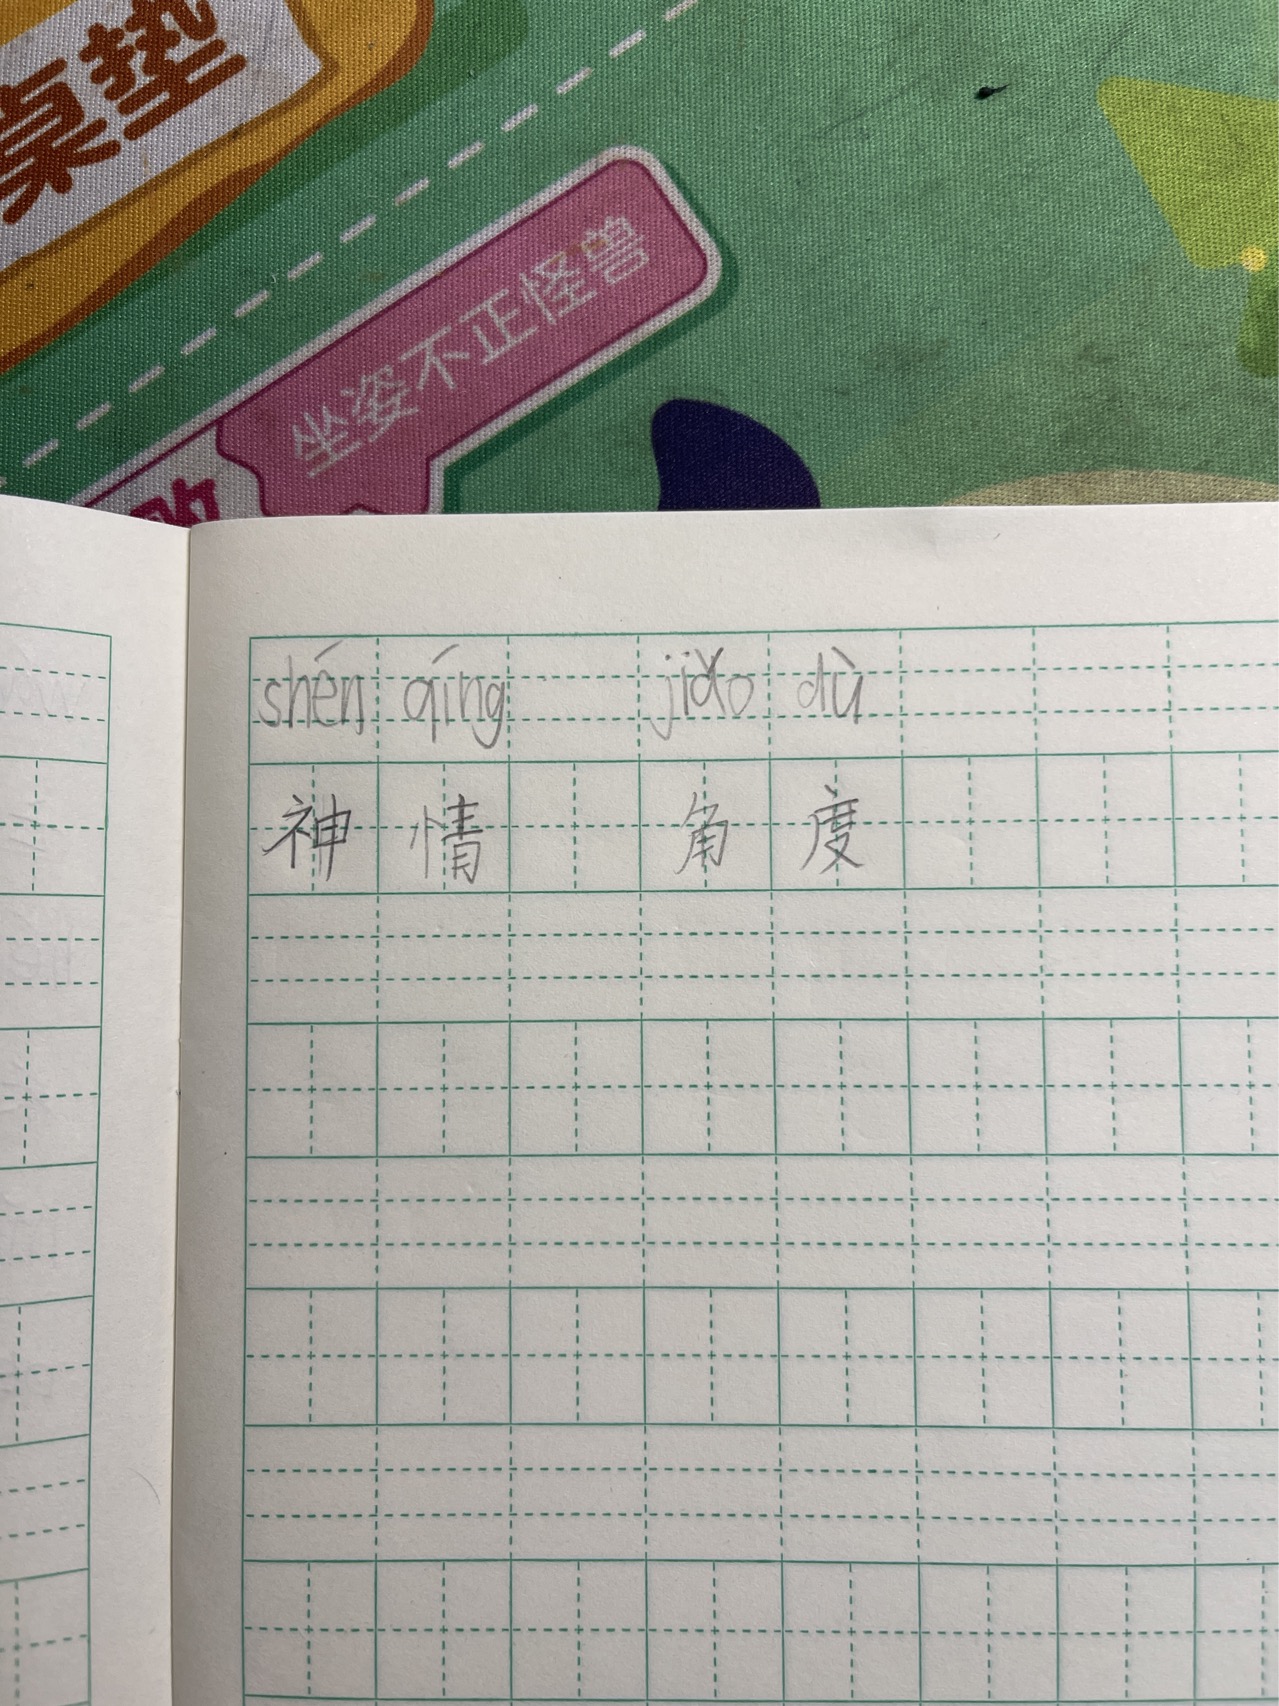 桌垫
坐姿不正怪兽
shén qíng jiǎo dù
神情 角度